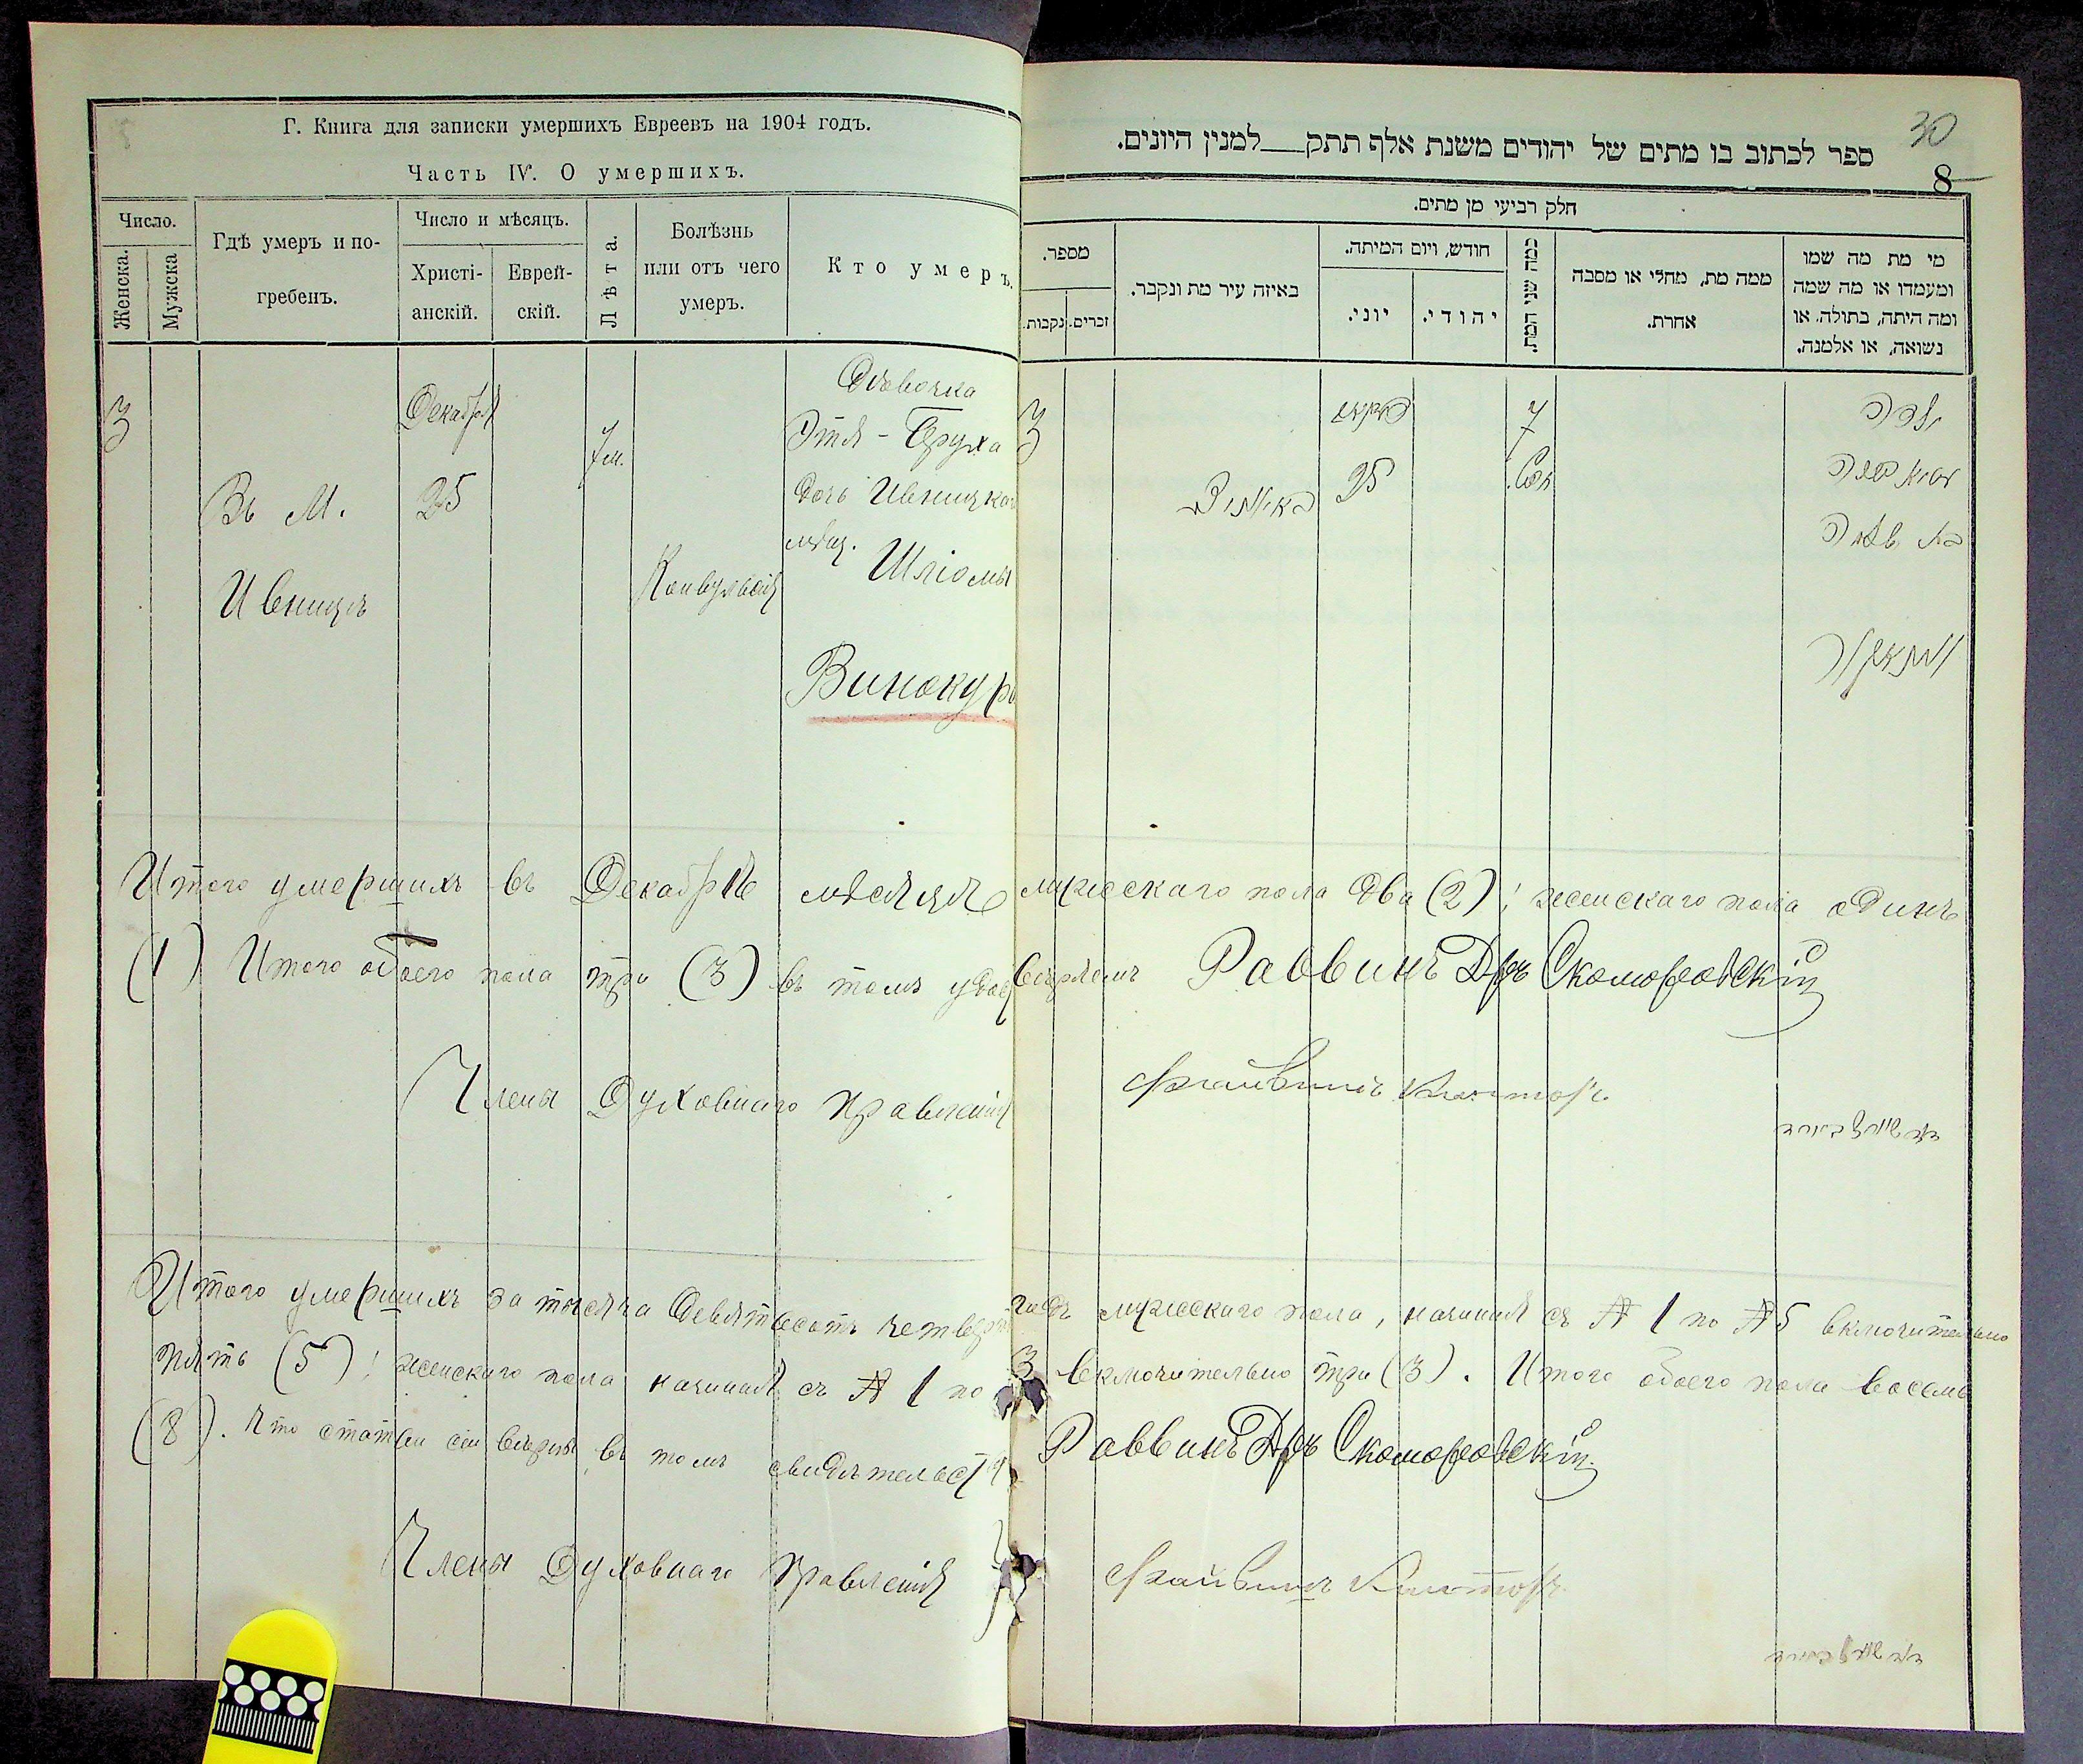 Г. Книга для записки умершихъ Евреевъ на 1904 годъ.
Часть IV. О умершихъ.
Число.
Женска.
Мужска
Гдѣ умеръ и по-
гребенъ.
Число и мѣсяцъ.
Христі-
анскій.
Еврей-
скій.
Лѣта.
Болѣзнь
или отъ чего
умеръ.
Кто умеръ.
3
Въ М.
Ивницѣ
Декабря
25
7 м.
Конвульсія
Дѣвочка
Этя-Бруха
дочь Ивницкаго
мѣщ. Шліомы
Винокура
30
ספר לכתוב בו מתים של יהודים משנת אלף תתק___למנין היונים.
8
חלק רביעי מן מתים.
מספר.
נקבות.
זכרים.
באיזה עיר מת ונקבר.
חודש, ויום המיתה.
יוני.
יהודי.
כמה שני המת.
ממה מת, מחלי או מסבה
אחרת.
מי מת מה שמו
ומעמדו או מה שמה
ומה היתה, בתולה, או
נשואה, או אלמנה.
3
25
7
ילדה
בת שלמה
Итого умершихъ въ Декабрѣ мѣсяцѣ мужескаго пола два (2); женскаго пола одинъ
(1) Итого обоего пола три (3) въ томъ удостовѣряемъ Раввинъ Д-ръ Скоморовскій
Члены Духовнаго Правленія
Итого умершихъ за тысяча девятьсотъ четвертый годъ мужескаго пола, начиная съ № 1 по № 5 включительно
пять (5); женскаго пола начиная съ № 1 по 3 включительно три (3). Итого обоего пола восемь
(8). Что статьи сіи вѣрны въ томъ свидѣтельствуемъ Раввинъ Д-ръ Скоморовскій
Члены Духовнаго Правленія